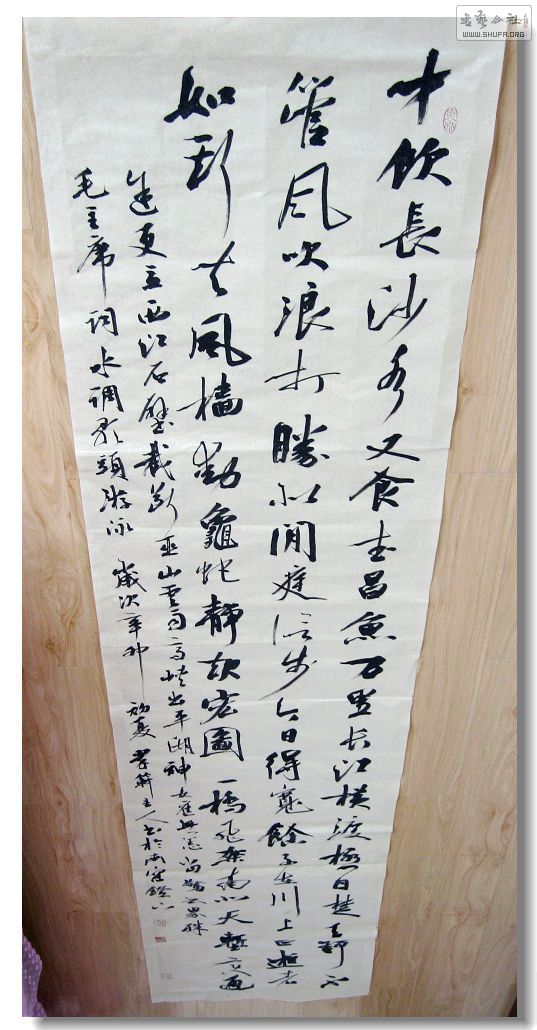 書藝公社
WWW.SHUFA.ORG
才飲長沙水又食武昌魚万里长江横渡極目楚天舒不
管风吹浪打勝似閒庭信步今日得寬餘子在川上曰逝者
如斯夫風檣動龜蛇靜起宏圖一橋飛架南北天塹变通
途更立西江石壁截斷巫山雲雨高峡出平湖神女應無恙當驚世界殊
毛主席詞水調歌頭游泳 歲次辛卯 初夏 主人書於雨窗鐙下